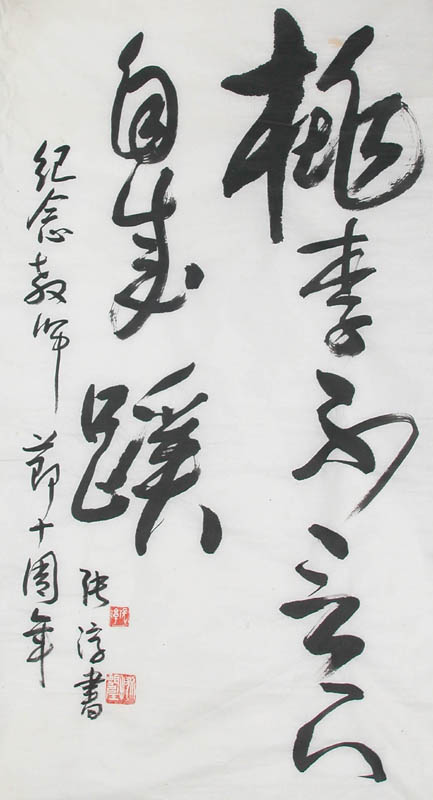 桃李不言下
自成蹊
纪念教师節十周年
张淳書